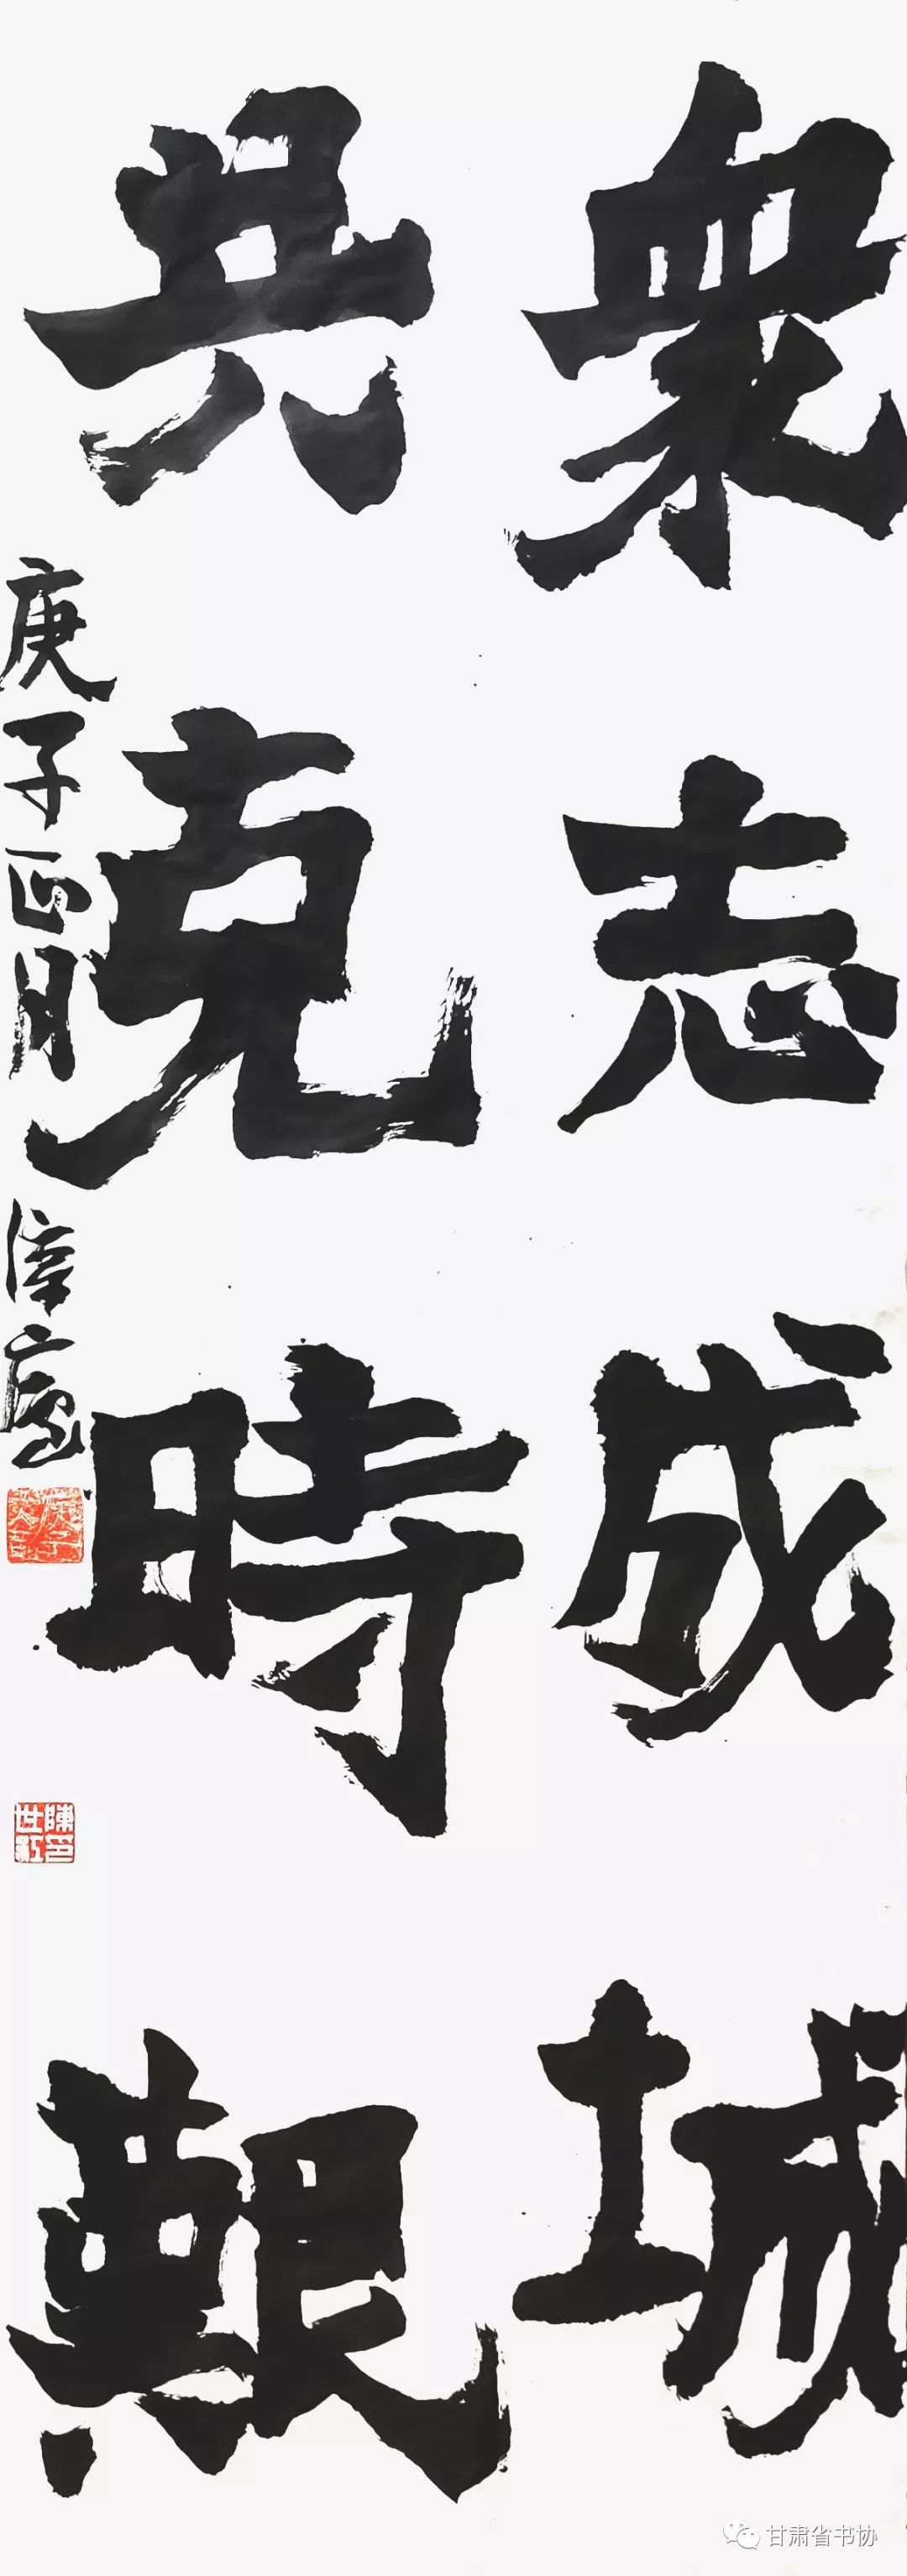 眾志成城
共克時艱
庚子正月
陳印世
甘肃省书协